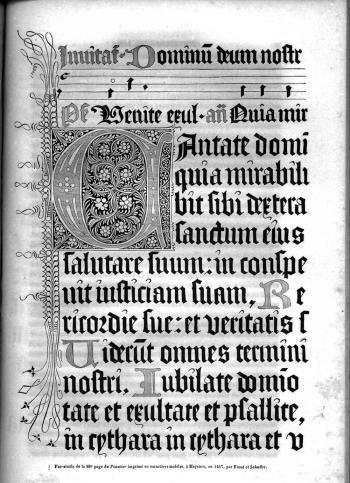 Invitať. Dominū deum nostr
Pš Venite exul. añ Quia mir
Cantate domi
quia mirabili
bit sibi dextera
sanctum eius
salutare suum: in conspe
uit iusticiam suam, Re
ricordie sue: et veritatis s
Viderūt omnes termini
nostri. Iubilate domīo
tate et exultate et psallite,
in cythara in cythara et v
Fac-simile de la 88e page du Psautier imprimé en caractères mobiles, à Mayence, en 1457, par Faust et Schœffer.